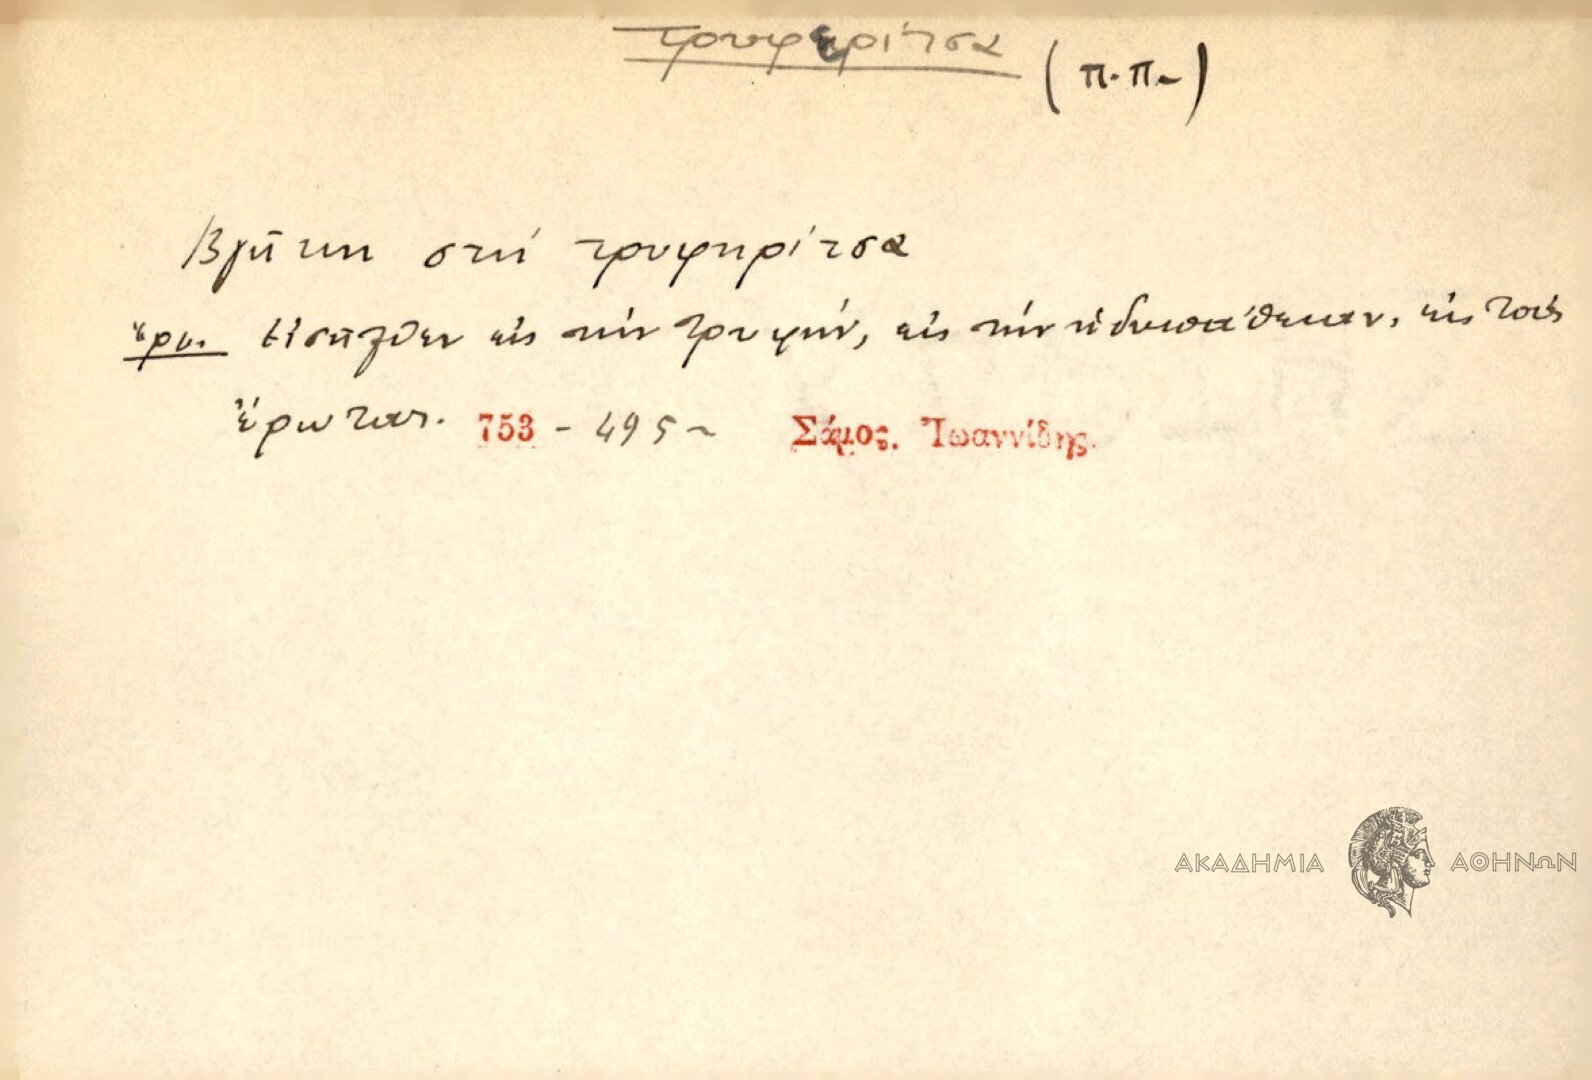 τρυφερίτσα (π.π.)
στή τρυφηρίτσα
ἑρμ. Εἰσῆλθεν εἰς τήν τρυφήν, εἰς τήν ἡδυπάθειαν, εἰς τούς
ἔρωτας. 753 - 495 ~ Σάμος. Ἰωαννίδης.
ΑΚΑΔΗΜΙΑ ΑΘΗΝΩΝ